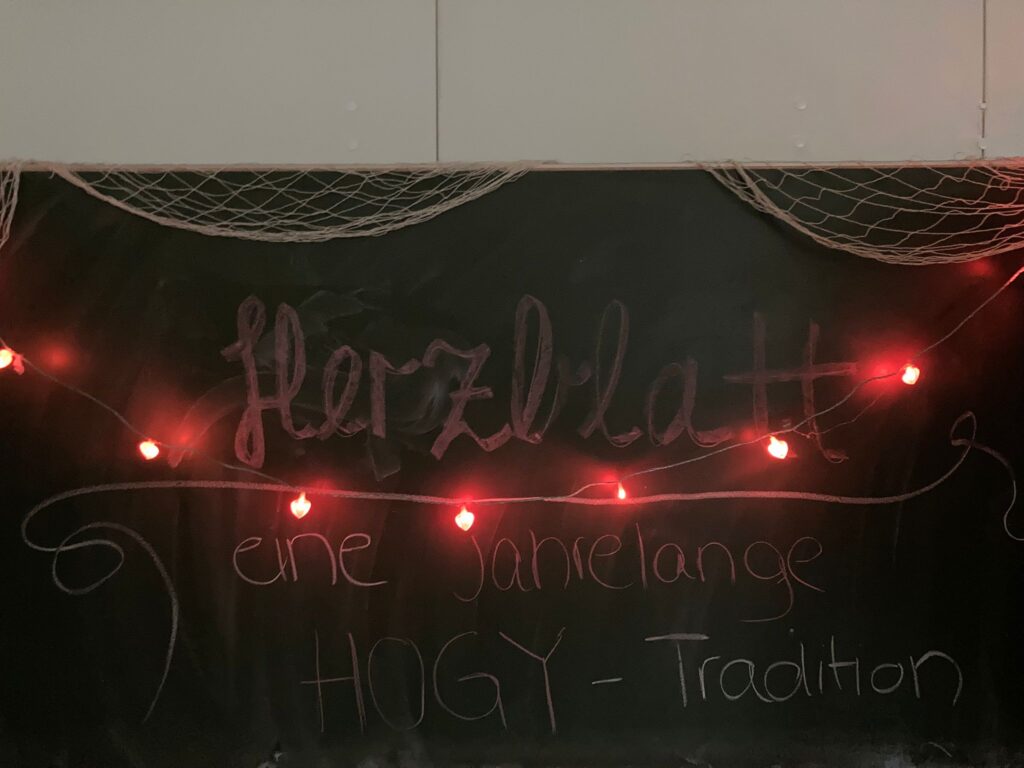 Herzblatt
eine jahrelange
HOGY - Tradition